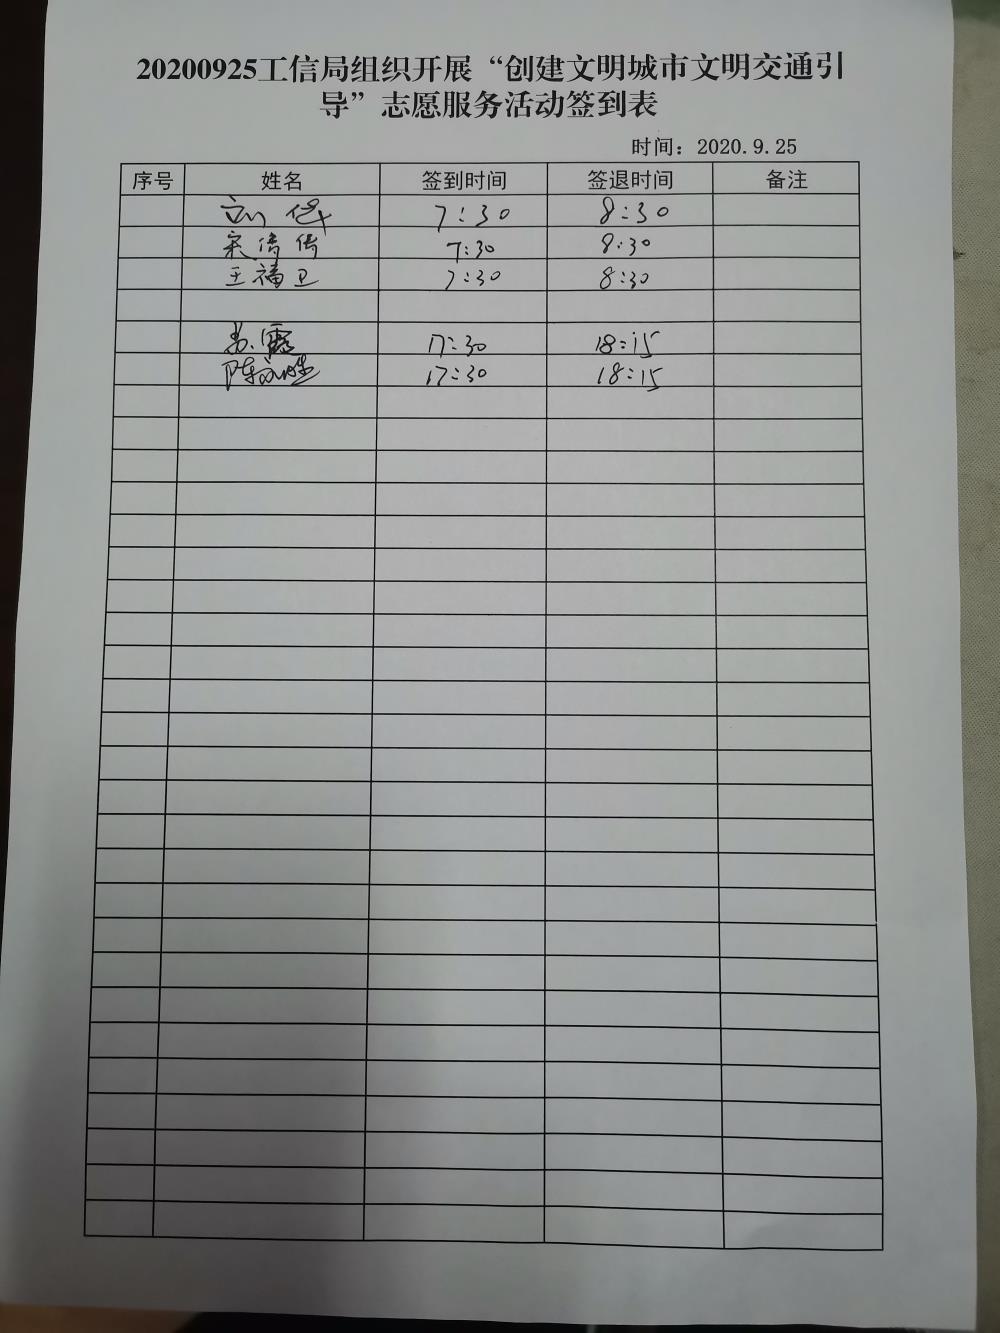 20200925工信局组织开展“创建文明城市文明交通引
导”志愿服务活动签到表
时间：2020.9.25
序号 姓名 签到时间 签退时间 备注
刘 7:30 8:30
宋倩倩 7:30 8:30
王福卫 7:30 8:30
苏露 17:30 18:15
陈 17:30 18:15